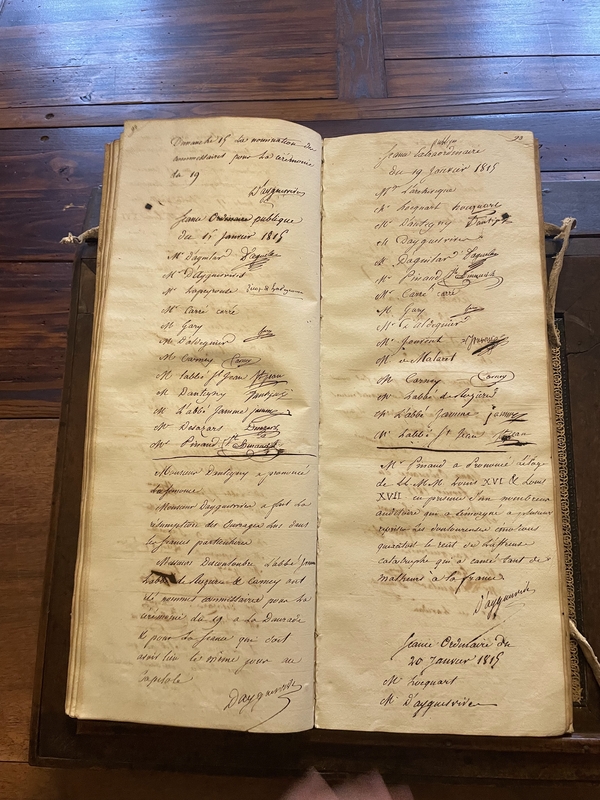 Dimanche 15 La nomination de
commissaires pour la cérémonie
du 19
D'aygues
Séance Ordinaire publique
du 15 janvier 1815
Mr D'aguilar D'aguilar
Mr
Mr Lapeyrouse
Mr Carré carré
Mr Gary
Mr D'aldeguier
Mr Carney Carney
Mr l'abbé St Jean St Jean
Mr Dantigny Dantigny
Mr L'abbé Jamme jamme
Mr Desazars Desazars
Mr Pinaud
Monsieur Dantigny a prononcé
la semonce
Monsieur D'ayguesvives a fait la
résumption des ouvrages lus dans
les séances particulières
Messieurs L'abbé jamme
L'abbé de & Carney ont
été nommés commissaires pour la
cérémonie du 19 a La Daurade
et pour La Séance qui doit
avoir lieu le même jour au
capitole
D'ayguesvives
92
publique
Séance Extraordinaire
du 19 janvier 1815
Mr
Mr hocquart hocquart
Mr Dantigny Dantigny
Mr Dayguesvives
Mr Daguilar D'aguilar
Mr Pinaud
Mr Carré carré
Mr Gary
Mr D'aldeguier
Mr
Mr de Malaret
Mr Carney Carney
Mr L'abbé de
Mr L'abbé Jamme jamme
Mr L'abbé St Jean St Jean
Mr Pinaud a Prononcé L'éloge
de LL MM Louis XVI & Louis
XVII en presence d'un nombreux
auditoire qui a témoigné a plusieurs
reprises Les douloureuses émotions
qu'excitait le récit de l'affreuse
catastrophe qui a causé tant de
malheurs a la france
D'ayguesvives
Séance Ordinaire du
20 Janvier 1815
Mr hocquart
Mr D'ayguesvives